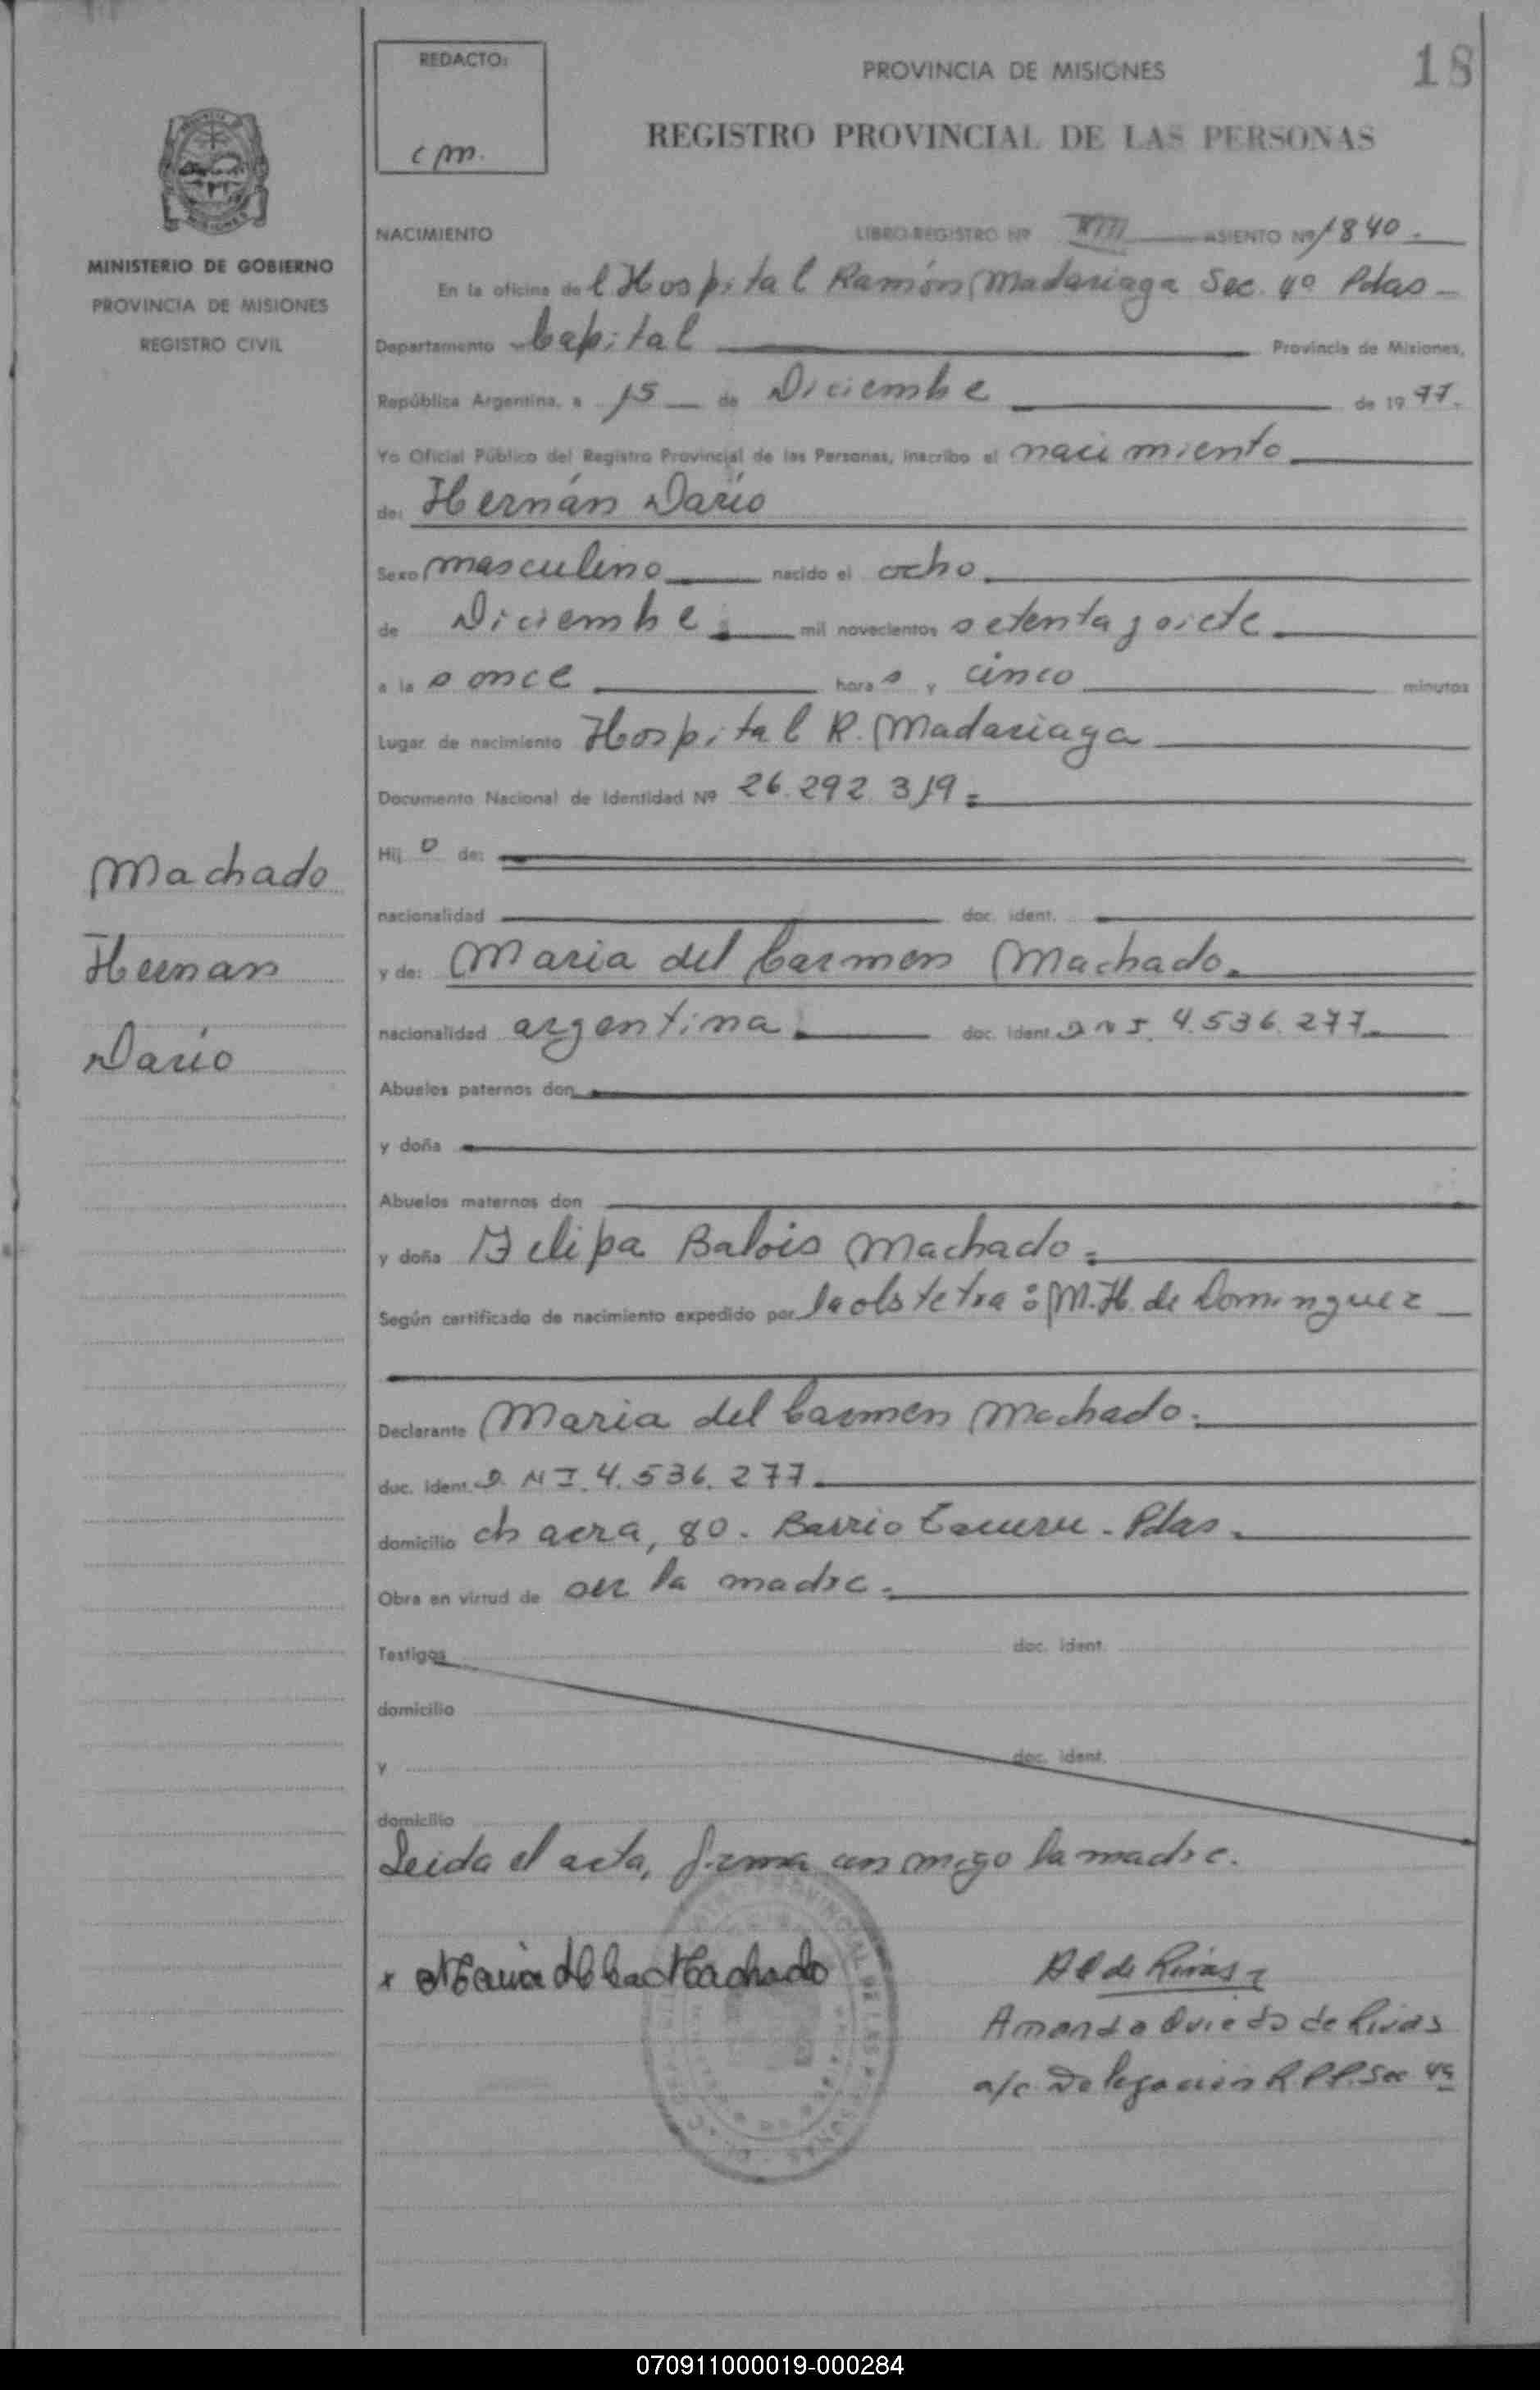 REDACTO:
cm.
PROVINCIA DE MISIONES
18
REGISTRO PROVINCIAL DE LAS PERSONAS
MINISTERIO DE GOBIERNO
PROVINCIA DE MISIONES
REGISTRO CIVIL
NACIMIENTO LIBRO-REGISTRO Nº XIII ASIENTO Nº 1840.
En la oficina del Hospital Ramón Madariaga Sec. 4º Pdas
Departamento Capital Provincia de Misiones,
República Argentina, a 15 de Diciembre de 1977.
Yo Oficial Público del Registro Provincial de las Personas, inscribo el nacimiento
de: Hernán Darío
Sexo masculino nacido el ocho
de Diciembre mil novecientos setenta y siete
a las once horas y cinco minutos
Lugar de nacimiento Hospital R. Madariaga
Documento Nacional de Identidad Nº 26.292.319
Hijo de:
nacionalidad doc. ident.
y de: Maria del Carmen Machado.
nacionalidad argentina. doc. ident. DNI. 4.536.277
Abuelos paternos don
y doña
Abuelos maternos don
y doña Felipa Balois Machado.
Según certificado de nacimiento expedido por la obstetra: M.H. de Dominguez
Declarante Maria del Carmen Machado.
doc. ident. DNI. 4.536.277
domicilio chacra, 80. Barrio Tacuru - Pdas.
Obra en virtud de ser la madre.
Testigos doc. ident.
domicilio
y doc. ident.
domicilio
Leida el acta, firma conmigo la madre.
Machado
Hernan
Darío
x Maria del Ca Machado
A O de Rivas
Amanda Oviedo de Rivas
a/c Delegacion R.P.P. Sec 4ª
070911000019-000284